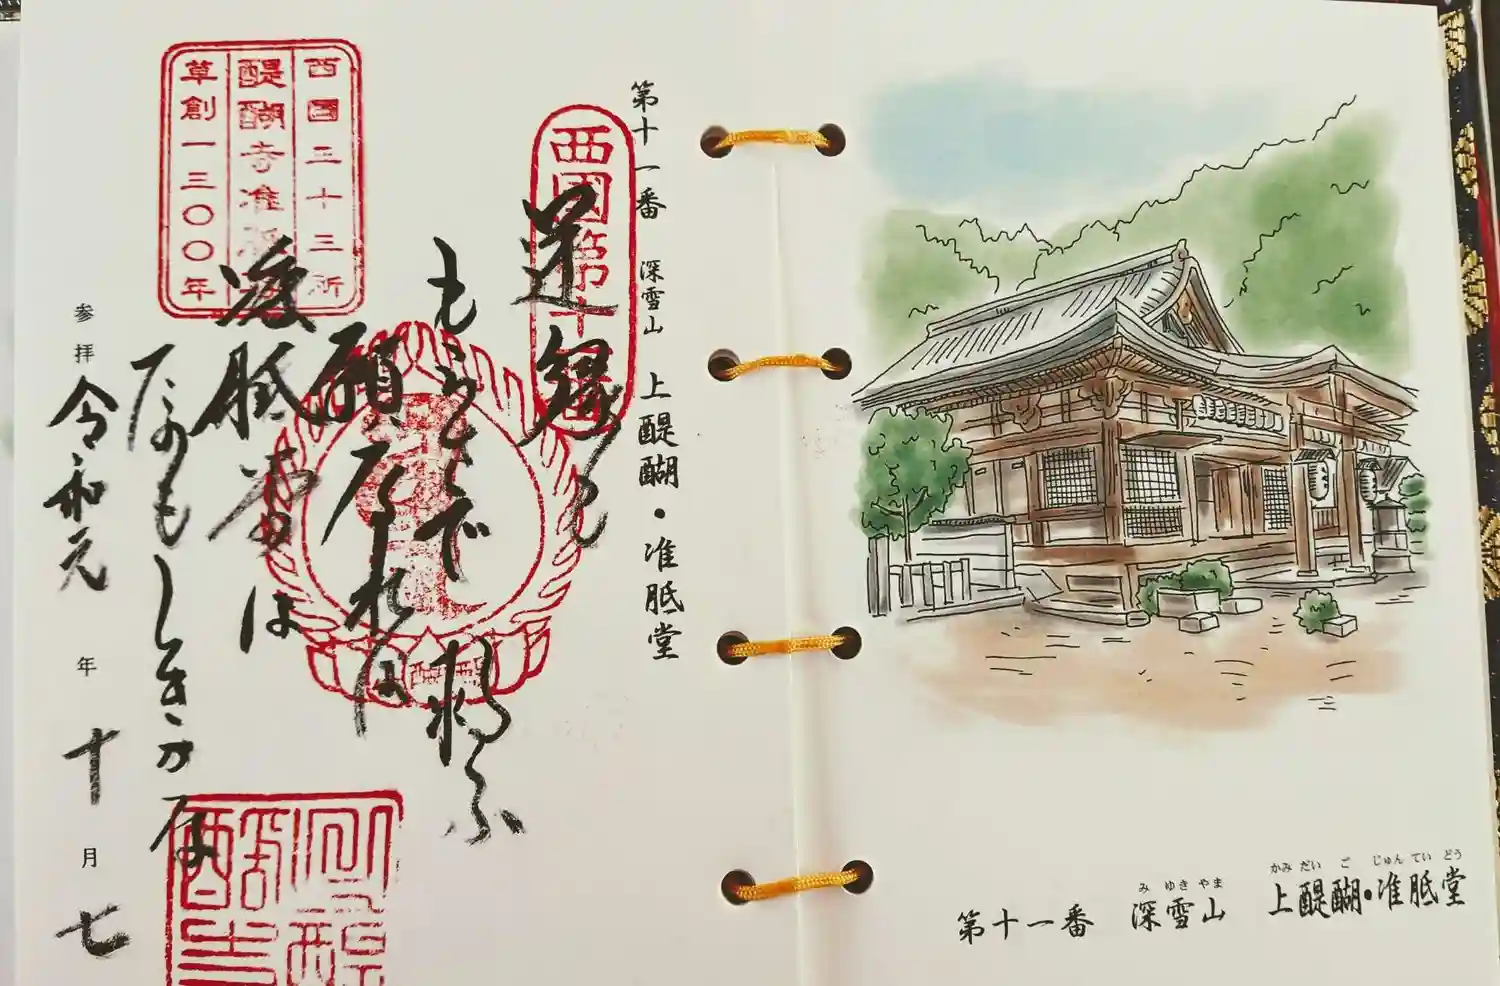 み ゆき やま かみ だい ご じゅん てい どう
第十一番 深雪山 上醍醐・准胝堂
第十一番 深雪山 上醍醐・准胝堂
西國第十
逆縁も
もらさで救ふ
願なれは
准胝堂は
たのもしきかな
西国三十三所
醍醐寺准胝
草創一三〇〇年
参拝 令和元年十月七